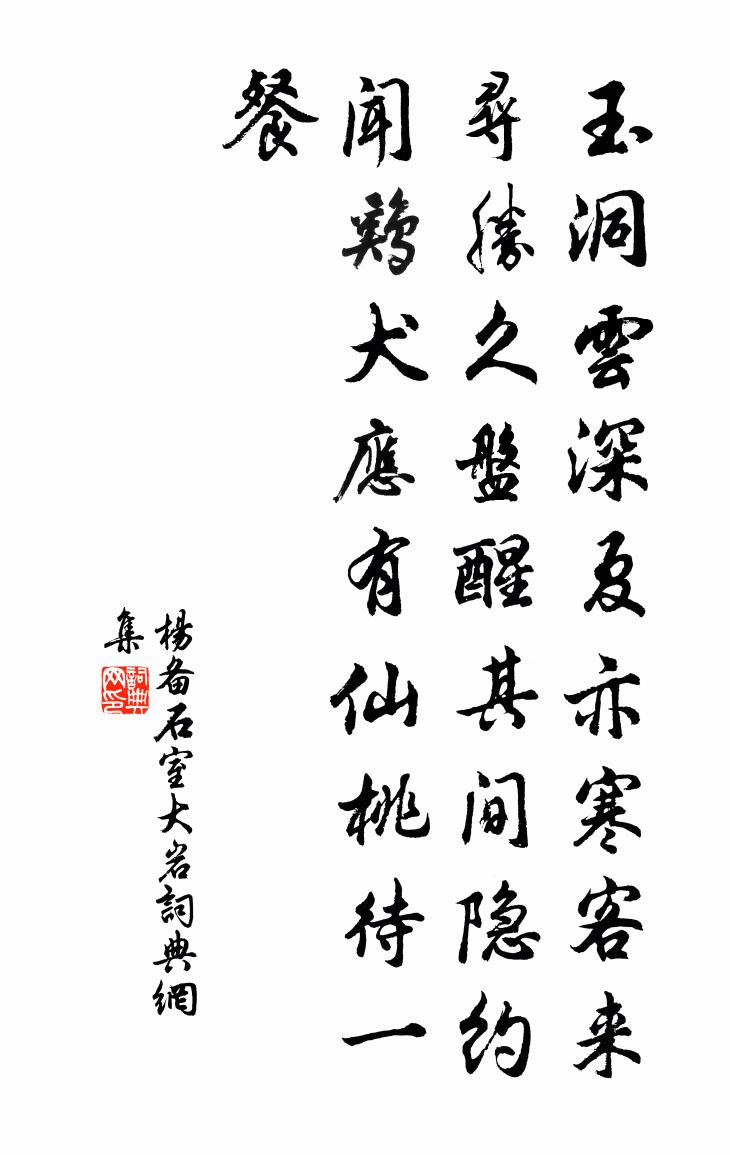 玉洞雲深夏亦寒客来
尋勝久盤醒其間隐約
聞鷄犬應有仙桃待一
餐
楊备石室大岩詞典網
集
詞典
网印